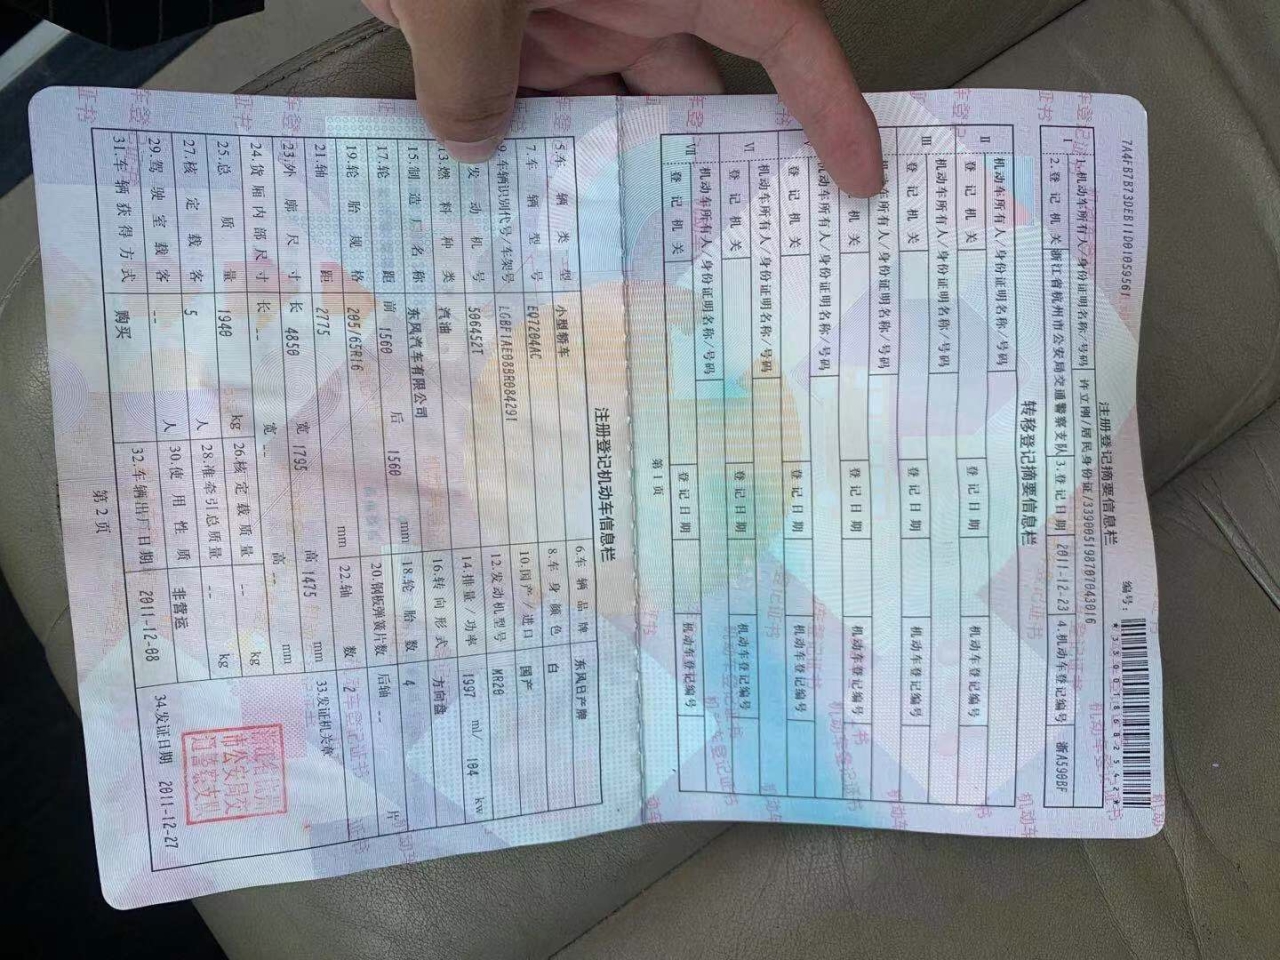 7A4FB7B73DEB11D01059561
编号：
*330018682542*
注册登记摘要信息栏
I 1.机动车所有人/身份证明名称/号码 许立刚/居民身份证/339005198707043016
2.登记机关 浙江省杭州市公安局交通警察支队 3.登记日期 2011-12-23 4.机动车登记编号 浙A590BF
转移登记摘要信息栏
II 机动车所有人/身份证明名称/号码
登记机关 登记日期 机动车登记编号
III 机动车所有人/身份证明名称/号码
登记机关 登记日期 机动车登记编号
车所有人/身份证明名称/号码
机关 登记日期 机动车登记编号
机动车所有人/身份证明名称/号码
登记机关 登记日期 机动车登记编号
VI 机动车所有人/身份证明名称/号码
登记机关 登记日期 机动车登记编号
VII 机动车所有人/身份证明名称/号码
登记机关 登记日期 机动车登记编号
第1页
注册登记机动车信息栏
5.车辆类型 小型轿车 6.车辆品牌 东风日产牌
7.车辆型号 EQ7204AC 8.车身颜色 白
9.车辆识别代号/车架号 LGBF1AE08BR084291 10.国产/进口 国产
发动机号 506452T 12.发动机型号 MR20
13.燃料种类 汽油 14.排量/功率 1997 ml/ 104 kw
15.制造厂名称 东风汽车有限公司 16.转向形式 方向盘
17.轮距 前 1560 后 1560 mm 18.轮胎数 4
19.轮胎规格 205/65R16 20.钢板弹簧片数 后轴 -- 片
21.轴距 2775 mm 22.轴数 2
23.外廓尺寸 长 4850 宽 1795 高 1475 mm 33.发证机关章
24.货厢内部尺寸 长 -- 宽 -- 高 -- mm
25.总质量 1940 kg 26.核定载质量 -- kg
27.核定载客 5 人 28.准牵引总质量 -- kg
29.驾驶室载客 -- 人 30.使用性质 非营运
31.车辆获得方式 购买 32.车辆出厂日期 2011-12-08 34.发证日期 2011-12-27
第2页